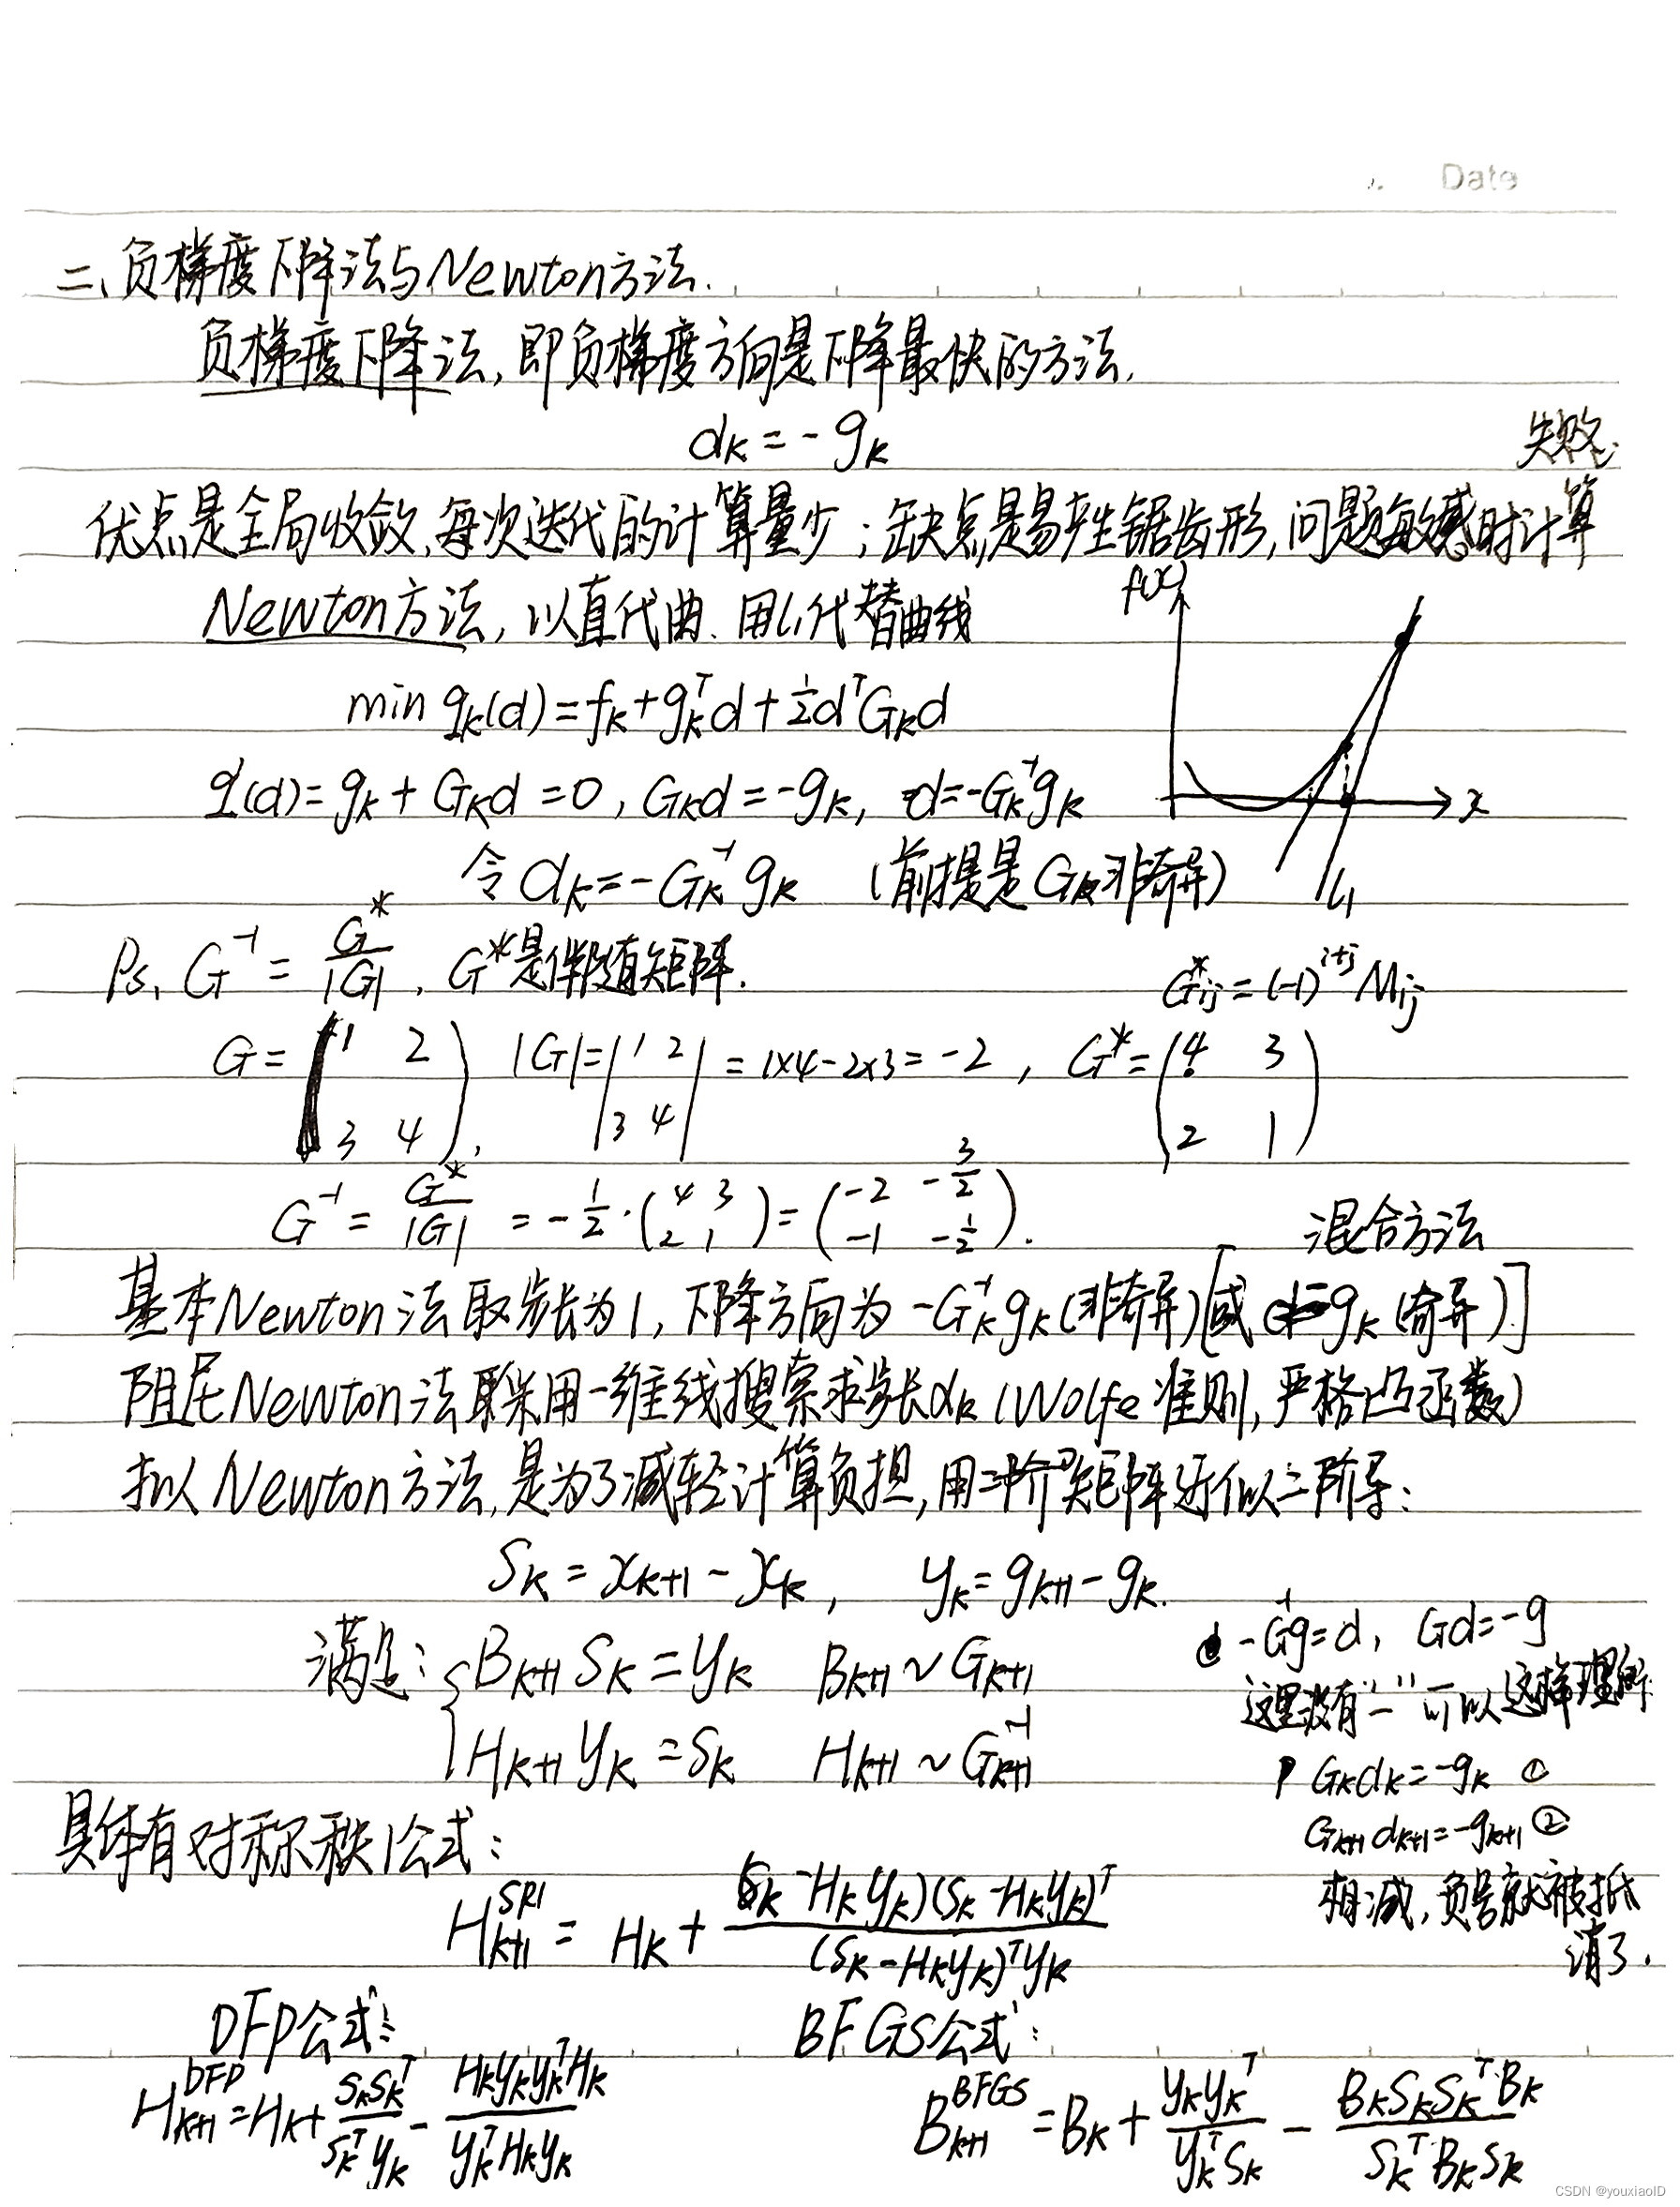 Date
二、负梯度下降法与Newton方法.
负梯度下降法,即负梯度方向是下降最快的方法.
dk = -gk
失败.
优点是全局收敛,每次迭代的计算量少;缺点是易产生锯齿形,问题敏感时计算
Newton方法,以直代曲.用l₁代替曲线
f(x)
min qk(d)=fk+gkᵀd+½dᵀGkd
q'(d)=gk+Gkd=0, Gkd=-gk, d=-Gk⁻¹gk
x
令dk=-Gk⁻¹gk (前提是Gk非奇异)
l₁
Ps, G⁻¹ = G*/|G|, G*是伴随矩阵.
G*ij=(-1)^(i+j) Mij
G=(1 2
3 4), |G|=|1 2
3 4| = 1×4-2×3=-2, G*=(4 3
2 1)
G⁻¹ = G*/|G| = -1/2·(4 3
2 1)=(-2 -3/2
-1 -1/2).
混合方法
基本Newton法取步长为1,下降方向为-Gk⁻¹gk(非奇异)[或d=-gk(奇异).]
阻尼Newton法采用一维线搜索求步长αk(Wolfe准则,严格凸函数)
拟Newton方法,是为了减轻计算负担,用矩阵近似二阶导:
Sk=xk+1-xk, yk=gk+1-gk.
满足: {Bk+1Sk=yk Bk+1~Gk+1
Hk+1yk=Sk Hk+1~Gk+1⁻¹
-G⁻¹g=d, Gd=-g
这里没有"-"可以这样理解
Gkdk=-gk ①
Gk+1dk+1=-gk+1 ②
相减,负号就被抵
消了.
具体有对称秩1公式:
Hk+1^SR1 = Hk + (Sk-Hkyk)(Sk-Hkyk)ᵀ/(Sk-Hkyk)ᵀyk
DFP公式: BFGS公式:
Hk+1^DFP=Hk+SkSkᵀ/Skᵀyk - HkykykᵀHk/ykᵀHkyk
Bk+1^BFGS=Bk+ykykᵀ/ykᵀSk - BkSkSkᵀBk/SkᵀBkSk
CSDN @youxiaoID